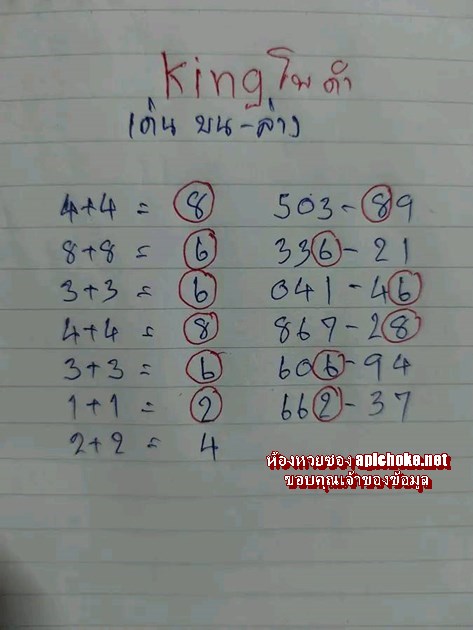 king โพดำ
เด่น บน-ล่าง
4+4 = 8 503-89
8+8 = 6 336-21
3+3 = 6 041-46
4+4 = 8 867-28
3+3 = 6 606-94
1+1 = 2 662-37
2+2 = 4
ห้องหวยซอง apichoke.net
ขอบคุณเจ้าของข้อมูล